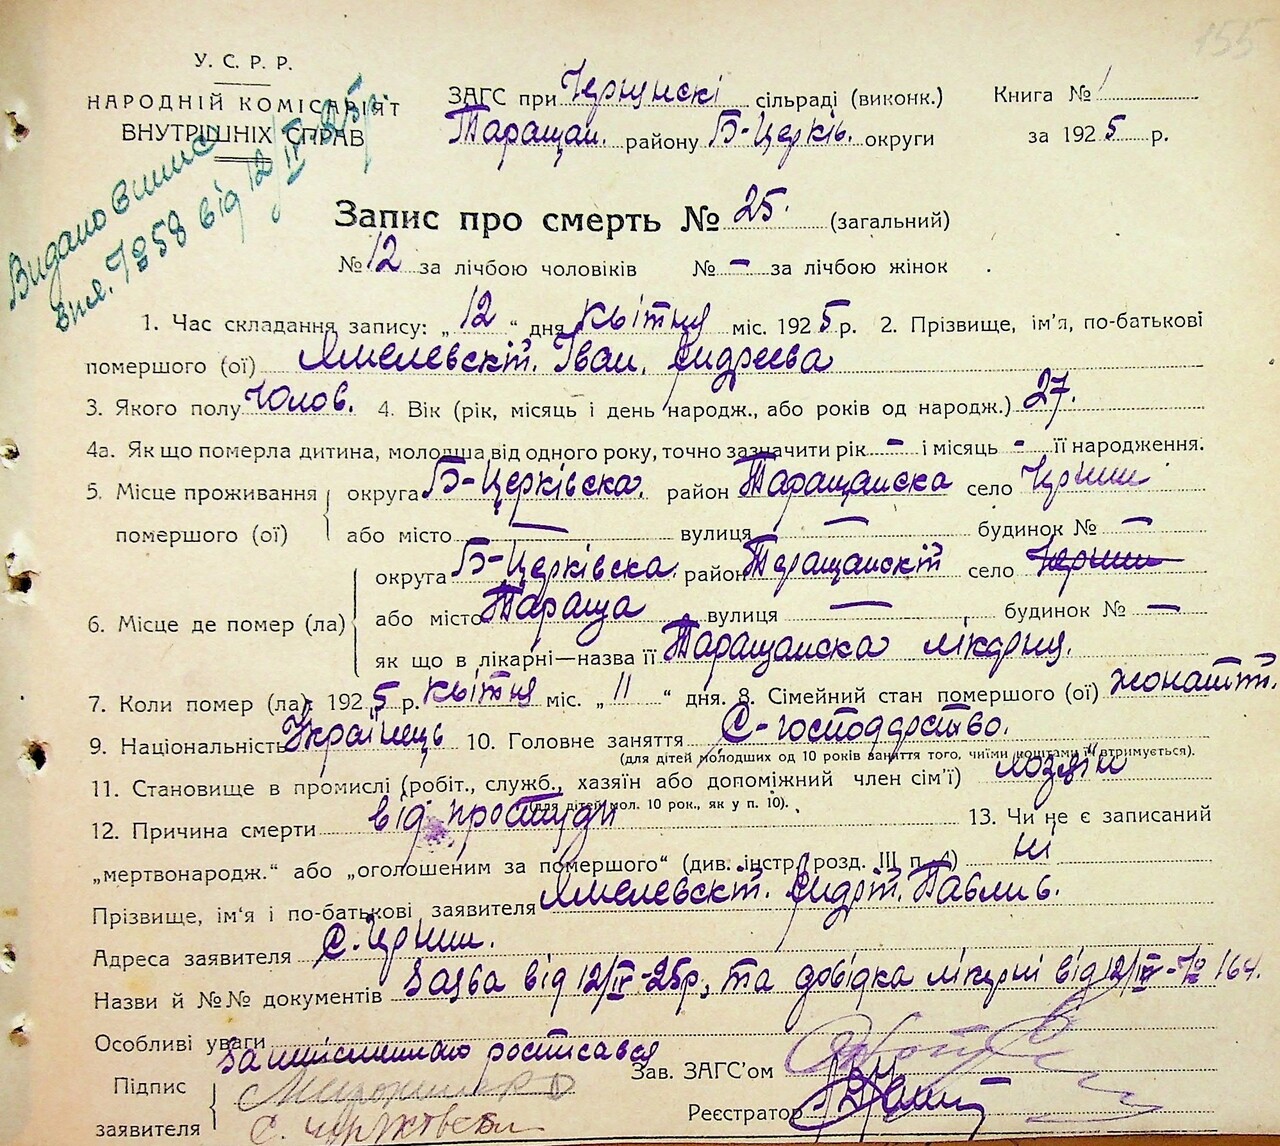 155
У. С. Р. Р.
НАРОДНІЙ КОМІСАРІЯТ
ВНУТРІШНІХ СПРАВ
ЗАГС при сільраді (виконк.) Книга № 1
Таращан. району Б-Церків. округи за 1925 р.
Видано випис
вия. №58 від 12/IV-25р.
Запис про смерть № 25. (загальний)
№ 12 за лічбою чоловіків № – за лічбою жінок
1. Час складання запису: „12“ дня квітня міс. 1925 р. 2. Прізвище, ім'я, по-батькові
помершого (ої) Ямелевскт. Іван. Андреева
3. Якого полу Чолов. 4. Вік (рік, місяць і день народж., або років од народж.) 27.
4а. Як що померла дитина, молодша від одного року, точно зазначити рік – і місяць – її народження.
5. Місце проживання помершого (ої) округа Б-Церківска. район Таращанска село
або місто — вулиця — будинок № —
6. Місце де помер (ла) округа Б-Церківска. район Таращанскт село
або місто Тараща вулиця — будинок № —
як що в лікарні—назва її Таращанска лікарня.
7. Коли помер (ла) 1925 р. квітня міс. „11“ дня. 8. Сімейний стан помершого (ої) жонатт.
9. Національність Українець 10. Головне заняття С-господарство.
(для дітей молодших од 10 років заняття того, чиїми коштами її втримується).
11. Становище в промислі (робіт., служб., хазяїн або допоміжний член сім'ї) хозяін
(для дітей мол. 10 рок., як у п. 10).
12. Причина смерти від простуди 13. Чи не є записаний
„мертвонародж.“ або „оголошеним за помершого“ (див. інстр. розд. III п. 4) ні
Прізвище, ім'я і по-батькові заявителя Ямелевскт. Андрт. Павлив.
Адреса заявителя с.
Назви й №№ документів Заява від 12/IV-25р, та довідка лікарні від 12/IV-№ 164.
Особливі уваги
За неписьменного росписався
Підпис заявителя
Зав. ЗАГС'ом
Реєстратор